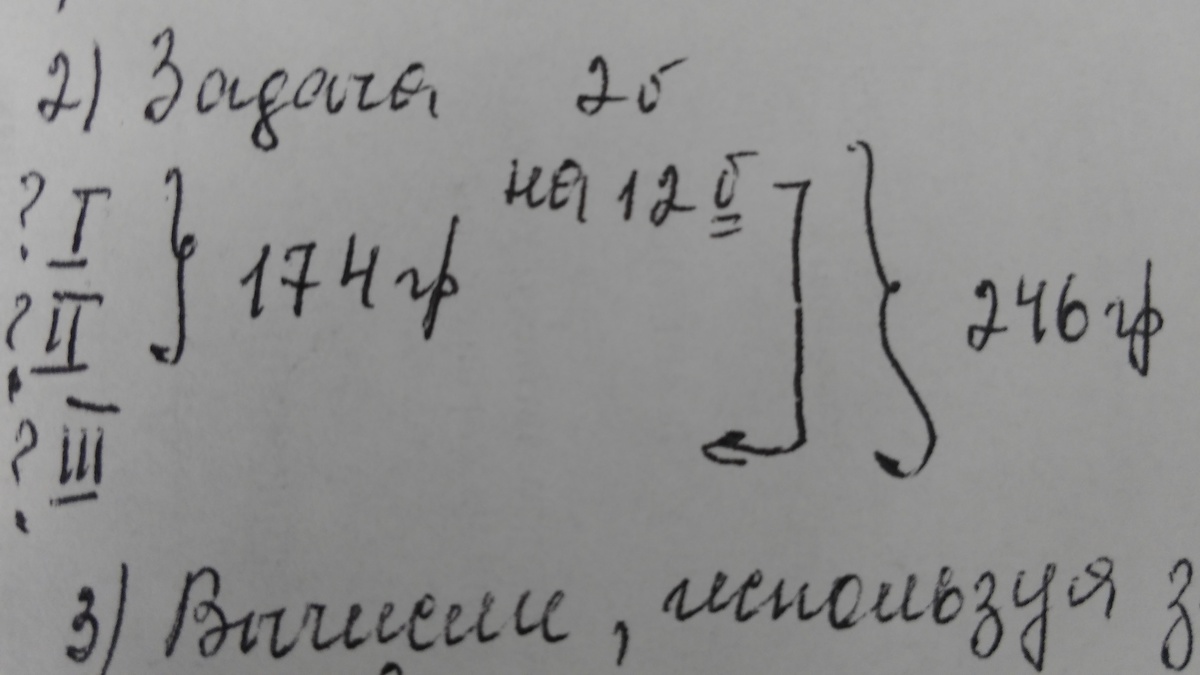 2) Задача 2б
? I на 12 б
174 гр
? II 246 гр
? III
3) Вычисли, используя з